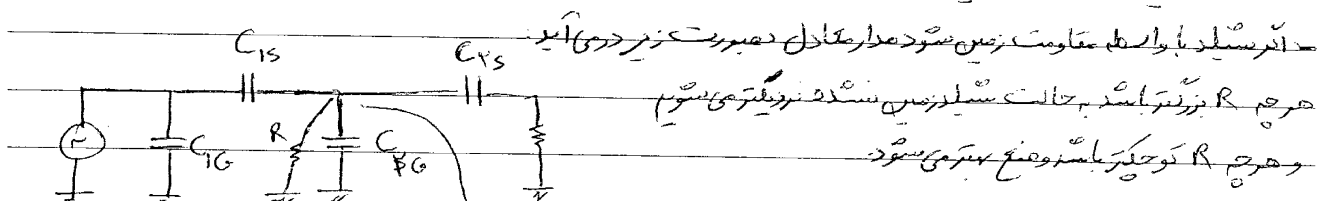 - اگر شیلد با واسطه مقاومت زمین شود مدار معادل بصورت زیر درمی آید:
هر چه R بزرگتر باشد به حالت شیلد زمین نشده نزدیکتر می شویم
و هر چه R کوچکتر باشد وضع بهتر می شود.
C1S
C2S
~
C1G
R
CSG